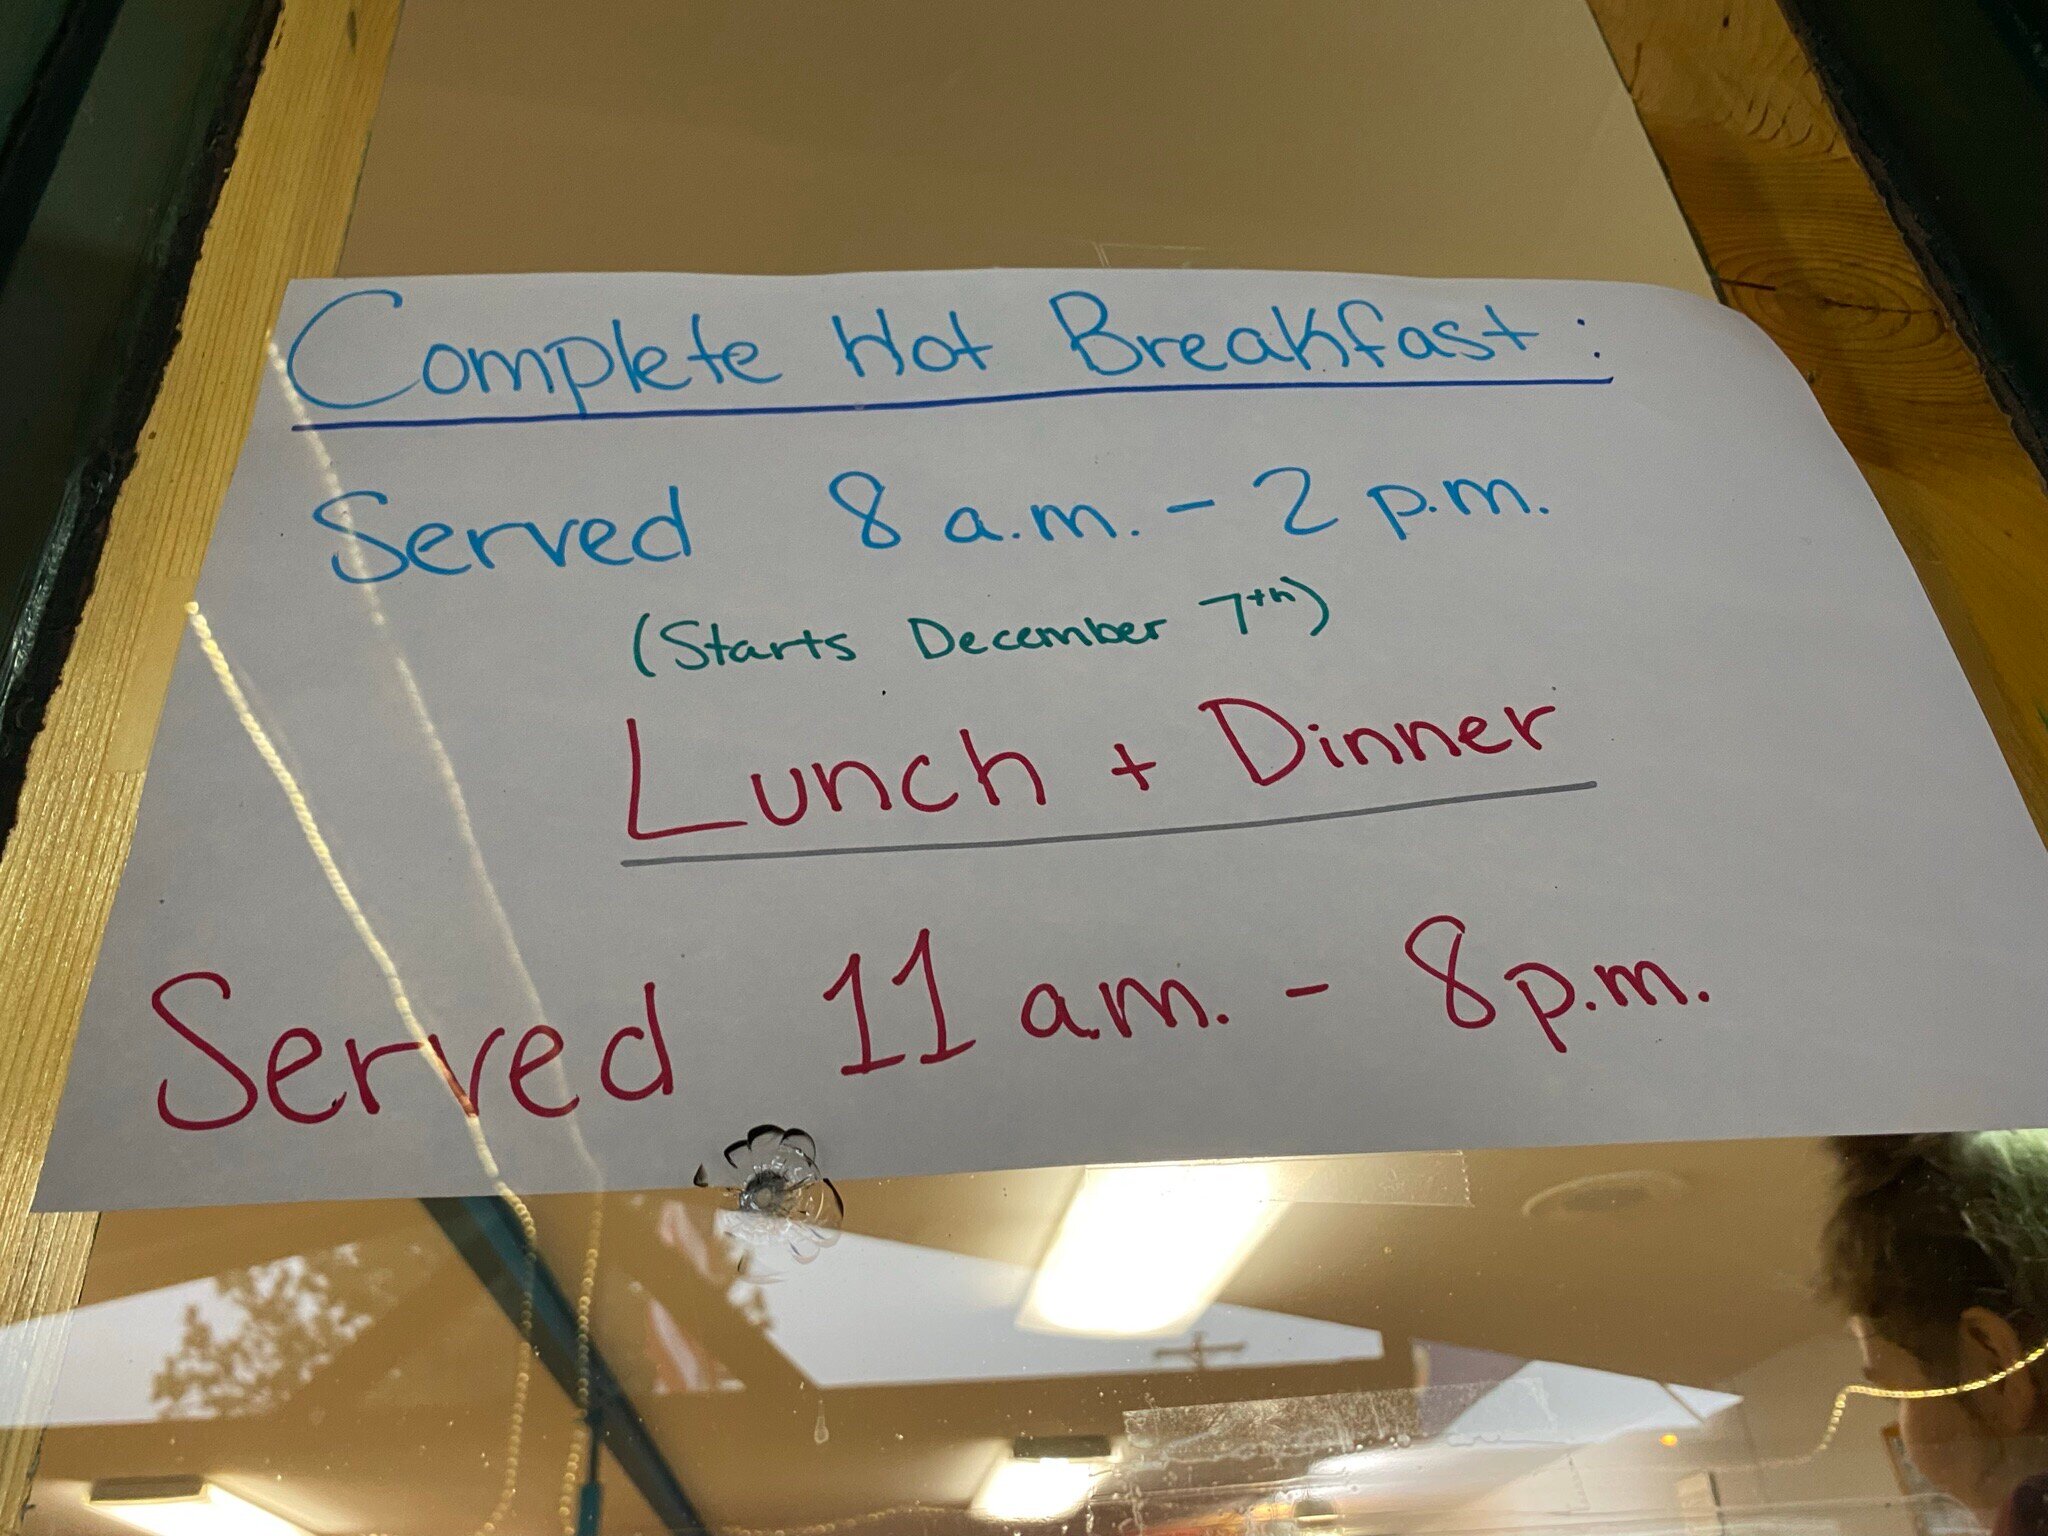 Complete Hot Breakfast:
Served 8 a.m. - 2 p.m.
(Starts December 7th)
Lunch + Dinner
Served 11 a.m. - 8 p.m.